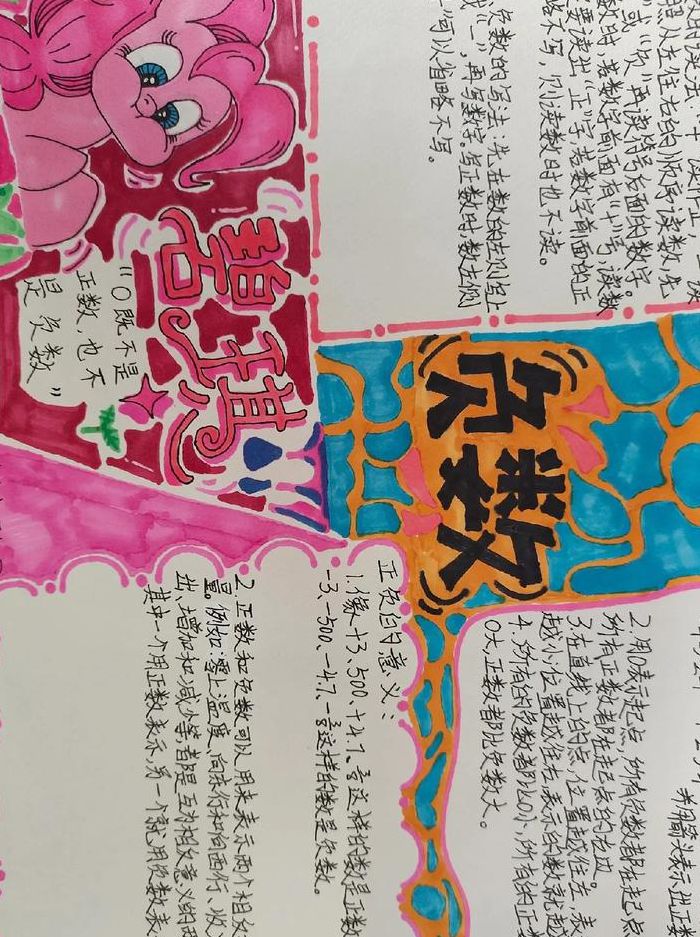 照从左往右的顺序读数，先
”或“负”再读符号后面的数字
数时，若数字前面有“+”号，读数
要读出“正”字，若数字前面的正
略不写，则读数时也不读。
负数的写法：先在数的左侧写上
或“-”，再写数字。写正数时，数左侧
”可以省略不写。
碧琪
“0既不是
正数，也不
是负数”
负数
并用箭头表示出正数
2.用0表示起点，所有负数都在起点
所有正数都在起点的右边。
3.在直线上的点，位置越往左，表
越小；位置越往右，表示的数就越
4.所有的负数都比0小，所有的正
0大，正数都比负数大。
正负的意义：
1.像+3、500、+4.7、这样的数是正数
-3、-500、-4.7、这样的数是负数。
2.正数和负数可以用来表示两个相反
量。例如：零上温度、向东行和向西行、收
出、增加和减少等都是互为相反意义的
其中一个用正数表示，另一个就用负数表